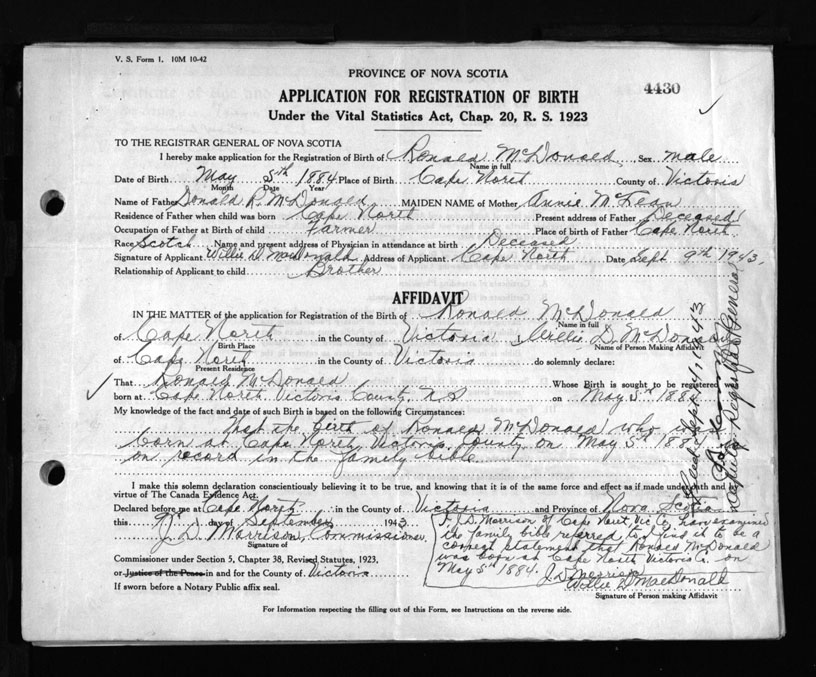 V. S. Form 1. 10M 10-42
PROVINCE OF NOVA SCOTIA
4430
APPLICATION FOR REGISTRATION OF BIRTH
Under the Vital Statistics Act, Chap. 20, R. S. 1923
TO THE REGISTRAR GENERAL OF NOVA SCOTIA
I hereby make application for the Registration of Birth of Ronald McDonald Sex male
Name in full
Date of Birth May 5th 1884 Place of Birth Cape North County of Victoria
Month Date Year
Name of Father Donald R. McDonald MAIDEN NAME of Mother Annie
Residence of Father when child was born Cape North Present address of Father Deceased
Occupation of Father at Birth of child Farmer Place of birth of Father Cape North
Race Scotch Name and present address of Physician in attendance at birth Deceased
Signature of Applicant Willie D. MacDonald Address of Applicant Cape North Date Sept 9th 1943,
Relationship of Applicant to child Brother
AFFIDAVIT
IN THE MATTER of the application for Registration of the Birth of Ronald McDonald
Name in full
of Cape North in the County of Victoria Willie D. McDonald
Birth Place Name of Person Making Affidavit
of Cape North in the County of Victoria do solemnly declare:
Present Residence
That Ronald McDonald Whose Birth is sought to be registered was
born at Cape North Victoria County, N.S. on May 5th 1884
My knowledge of the fact and date of such Birth is based on the following Circumstances:
That the birth of Ronald McDonald who was
born at Cape North, Victoria County on May 5th 1884 is
on record in the family bible.
I make this solemn declaration conscientiously believing it to be true, and knowing that it is of the same force and effect as if made under oath and by
virtue of The Canada Evidence Act.
Declared before me at Cape North in the County of Victoria and Province of Nova Scotia
this 9th day of September 1943
J. D. Morrison, Commissioner
Signature of
Commissioner under Section 5, Chapter 38, Revised Statutes, 1923,
or Justice of the Peace in and for the County of Victoria
If sworn before a Notary Public affix seal.
I, J.D. Morrison of Cape North, Vic Co, have examined
the family bible referred to & find it to be a
correct statement that Ronald McDonald
was born at Cape North Victoria Co. on
May 5th 1884.
J. D. Morrison
Willie D. MacDonald
Signature of Person making Affidavit
For Information respecting the filling out of this Form, see Instructions on the reverse side.
Deputy Registrar General